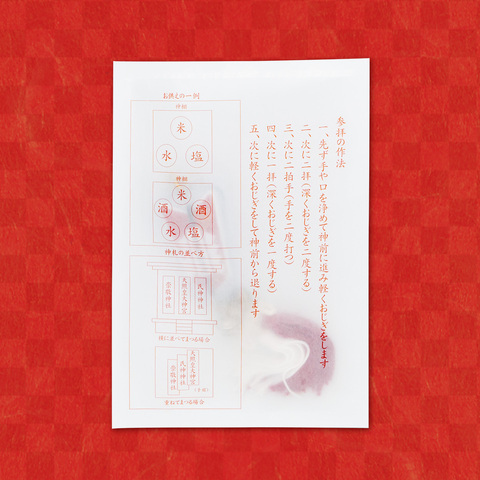 参拝の作法
一、先ず手や口を浄めて神前に進み軽くおじぎをします
二、次に二拝(深くおじぎを二度する)
三、次に二拍手(手を二度打つ)
四、次に一拝(深くおじぎを一度する)
五、次に軽くおじぎをして神前から退ります
お供えの一例
神棚
米
水 塩
神棚
米
酒 酒
水 塩
神札の並べ方
氏神神社
天照皇大神宮
崇敬神社
横に並べてまつる場合
天照皇大神宮
氏神神社
崇敬神社
重ねてまつる場合